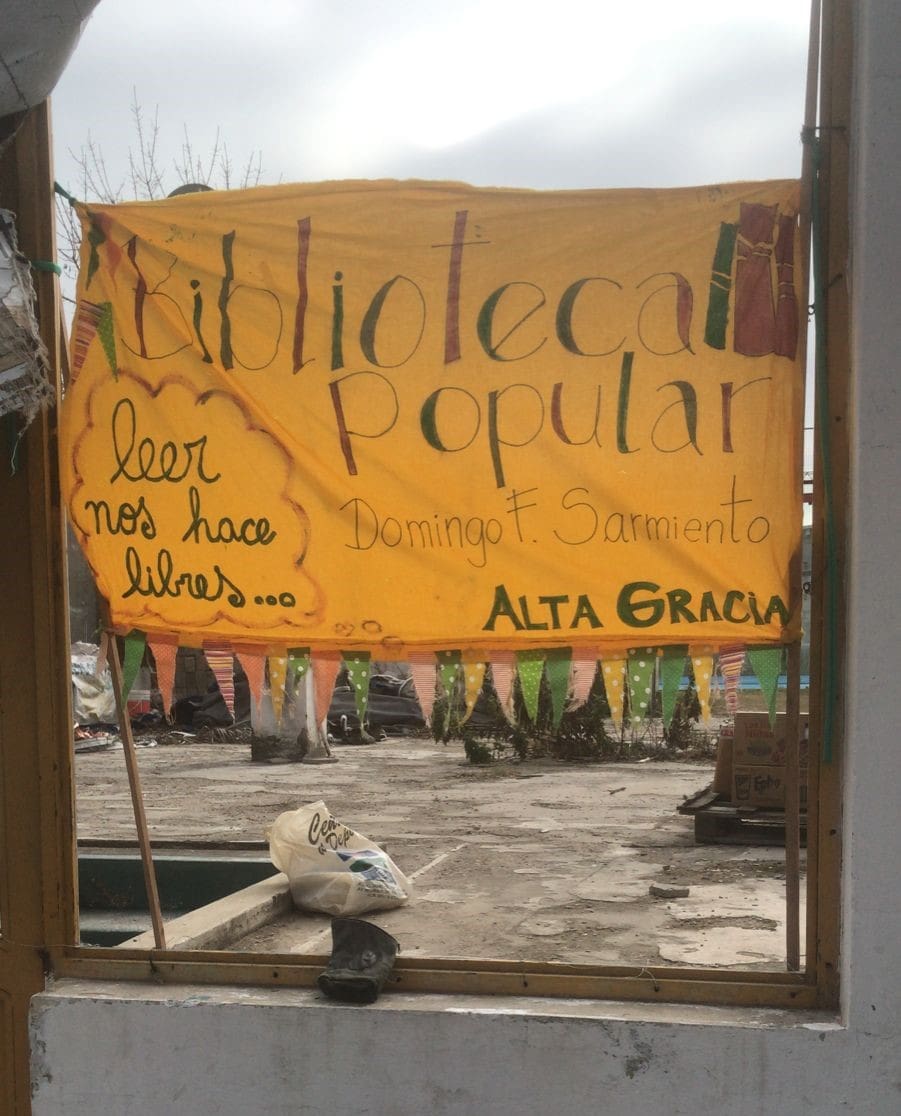 Biblioteca
Popular
leer
nos hace
libres...
Domingo F. Sarmiento
ALTA GRACIA